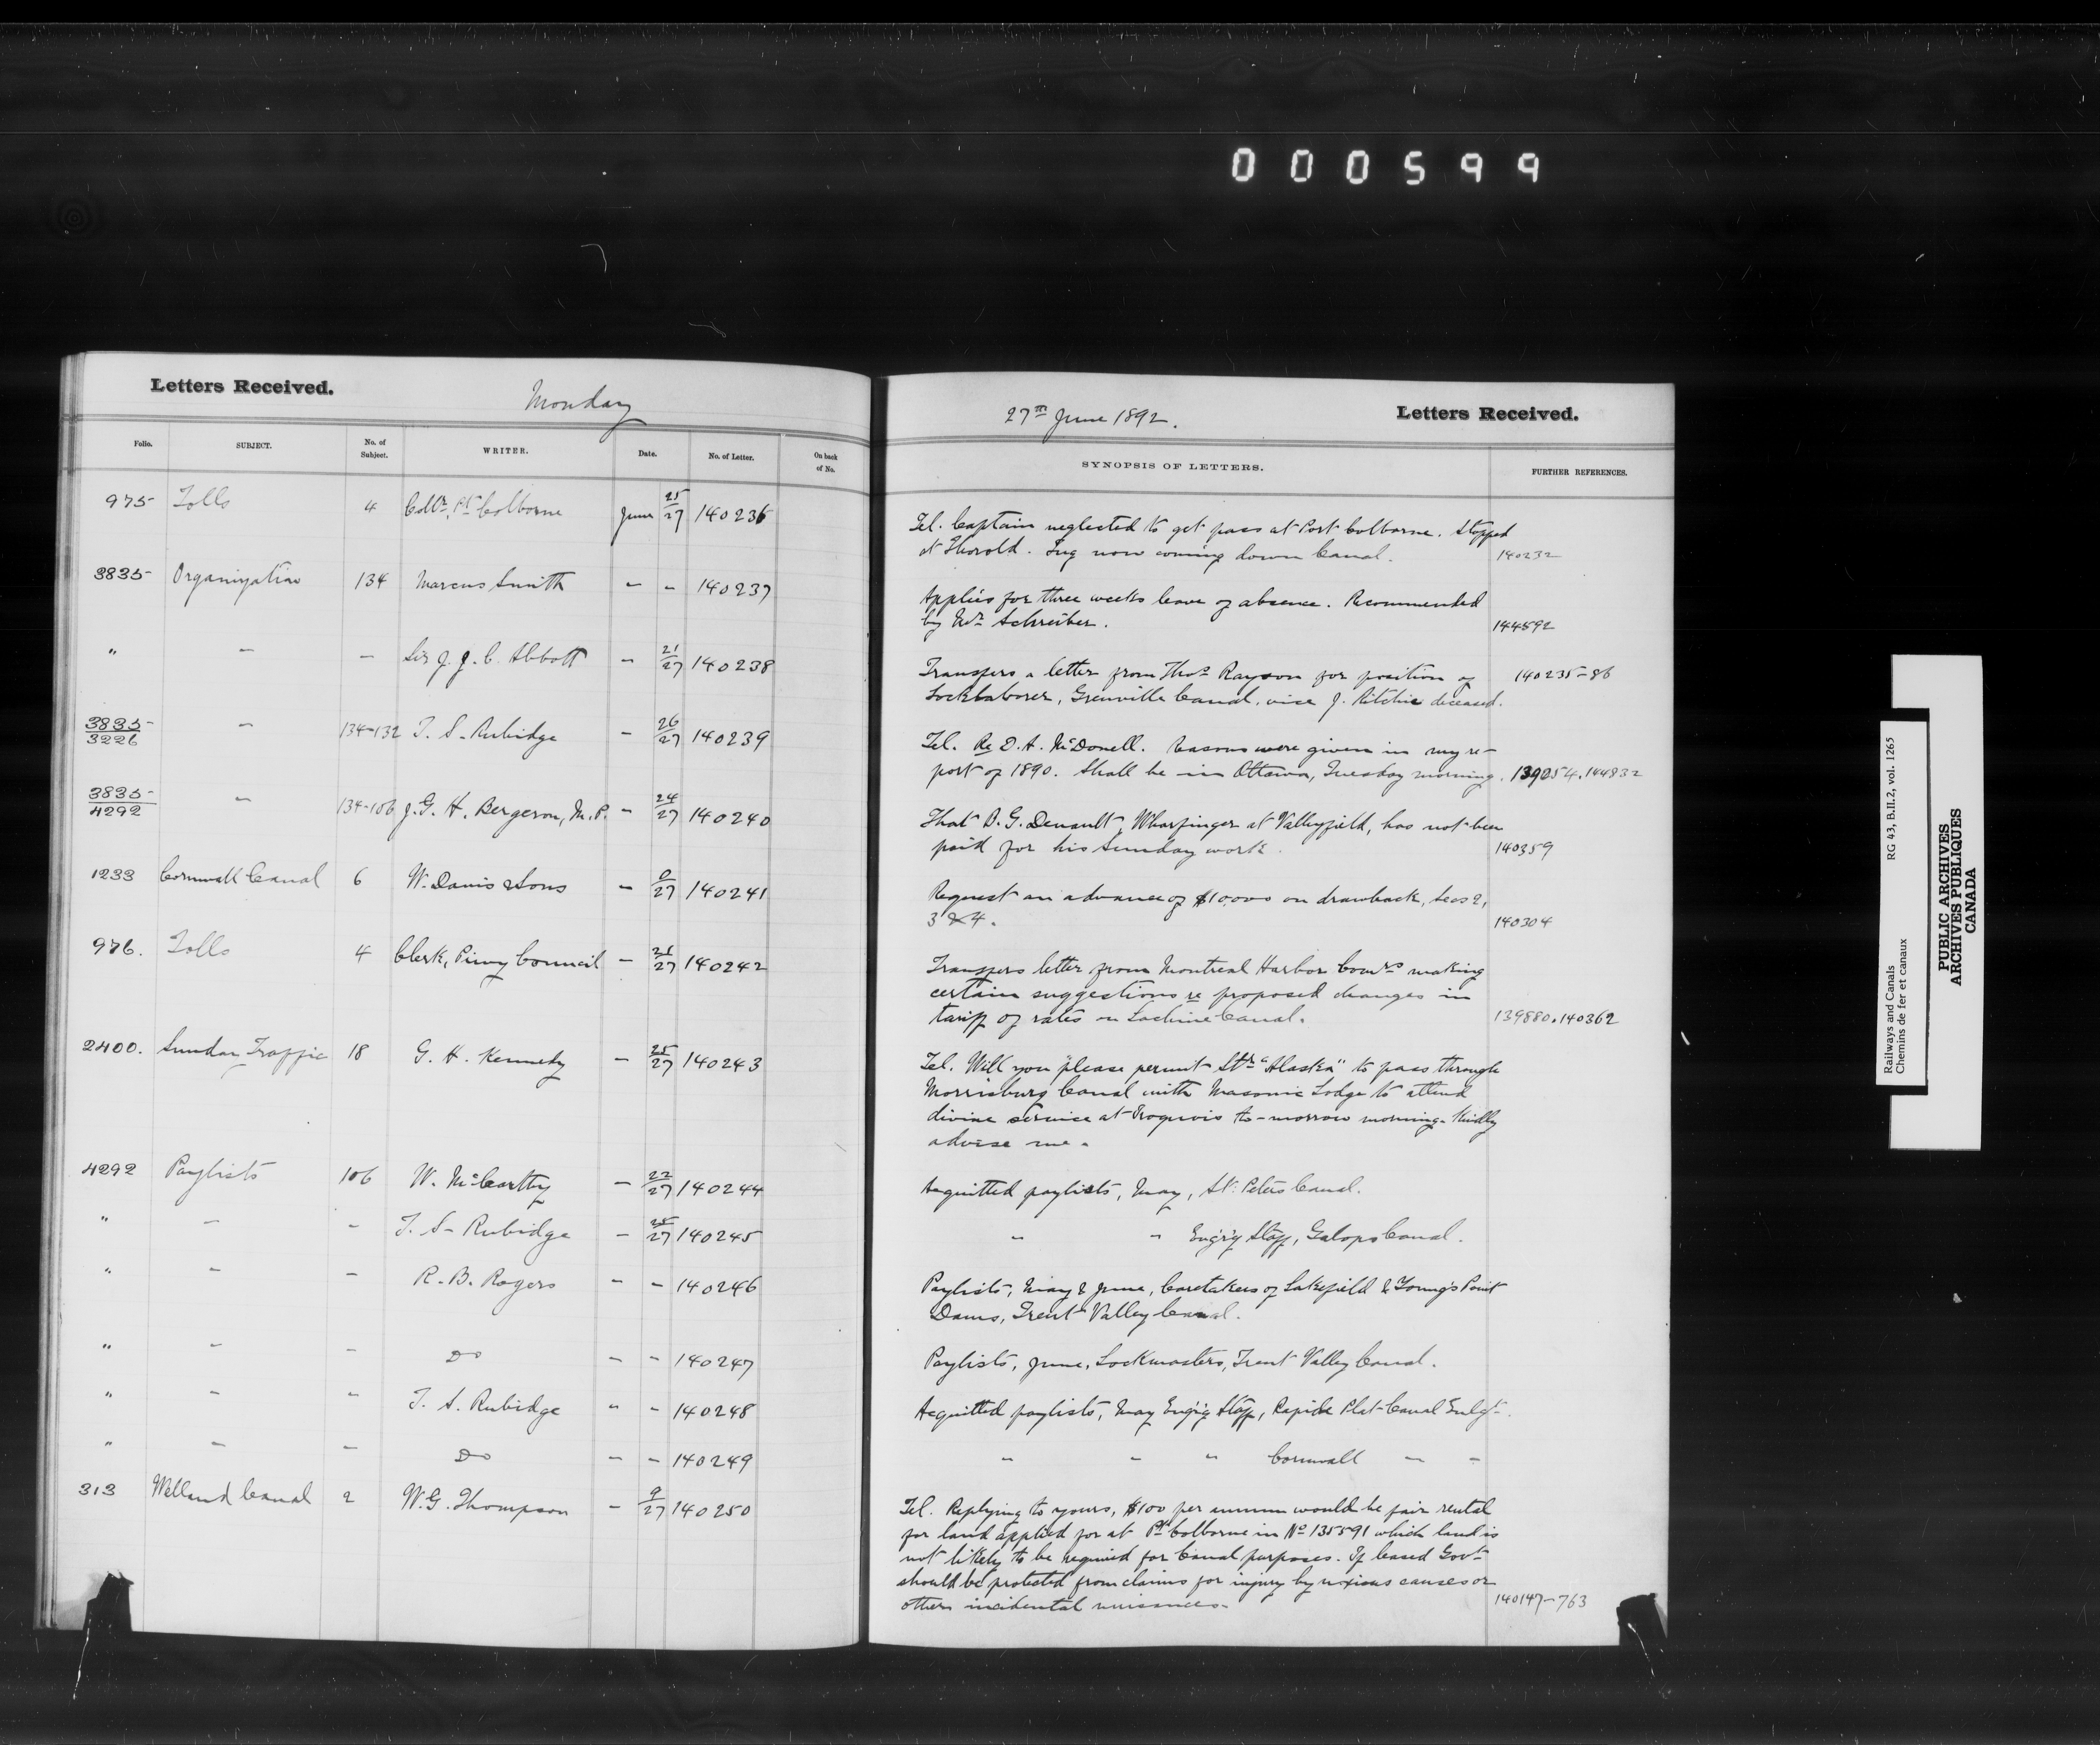 000599
Letters Received.
Monday
Folio. SUBJECT. No. of Subject. WRITER. Date. No. of Letter. On back of No.
975 Tolls 4 Collr. Pt. Colborne June 25/27 140236
3835 Organization 134 Marcus Smith - - 140237
" - - Sir J. J. C. Abbott - 21/27 140238
3835/3226 - 134-132 T. S. Rubidge - 26/27 140239
3835/4292 - 134-106 J. G. H. Bergeron, M.P. - 24/27 140240
1233 Cornwall Canal 6 W. Davis & Sons - 0/27 140241
976. Tolls 4 Clerk, Privy Council - 140242
2400. Sunday Traffic 18 G. H. Kennedy - 25/27 140243
4292 Paylists 106 W. McCarthy - 22/27 140244
" - - T. S. Rubidge - 25/27 140245
" - - R. B. Rogers - - 140246
" - - Do - - 140247
" - - T. S. Rubidge " - 140248
" - - Do - - 140249
313 Welland Canal 2 W. G. Thompson - 9/27 140250
27th June 1892.
Letters Received.
SYNOPSIS OF LETTERS. FURTHER REFERENCES.
Tel. Captain neglected to get pass at Port Colborne. Stopped
at Thorold. Tug now coming down Canal. 140232
Applies for three weeks leave of absence. Recommended
by Mr. Schreiber. 144592
Transfers a letter from Thos. Rayson for position of 140235-86
Locklaborer, Grenville Canal, vice J. Ritchie deceased.
Tel. Re D. A. McDonell. Reasons were given in my re-
port of 1890. Shall be in Ottawa, Tuesday morning. 139054.144832
That B. G. Denault, Wharfinger at Valleyfield, has not been
paid for his Sunday work. 140359
Request an advance of $10,000 on drawback, Secs 2,
3 & 4. 140304
Transfers letter from Montreal Harbor Comrs making
certain suggestions re proposed changes in
tariff of rates on Lachine Canal. 139880.140362
Tel. Will you please permit Str. "Alaska" to pass through
Morrisburg Canal with Masonic Lodge to attend
divine service at Iroquois to-morrow morning. Kindly
advise me.
Acquitted paylists, May, St. Peters Canal.
" " Eng'g Staff, Galops Canal.
Paylists, May & June, Caretakers of Lakefield & Young's Point
Dams, Trent Valley Canal.
Paylists, June, Lockmasters, Trent Valley Canal.
Acquitted paylists, May Eng'g Staff, Rapide Plat Canal Enlgt.
" " " Cornwall - -
Tel. Replying to yours, $100 per annum would be fair rental
for land applied for at Pt. Colborne in No. 135591 which land is
not likely to be required for Canal purposes. If leased Govt
should be protected from claims for injury by noxious causes or
other incidental nuisances. 140147-763
Railways and Canals RG 43, B.II.2, vol. 1265
Chemins de fer et canaux
PUBLIC ARCHIVES
ARCHIVES PUBLIQUES
CANADA